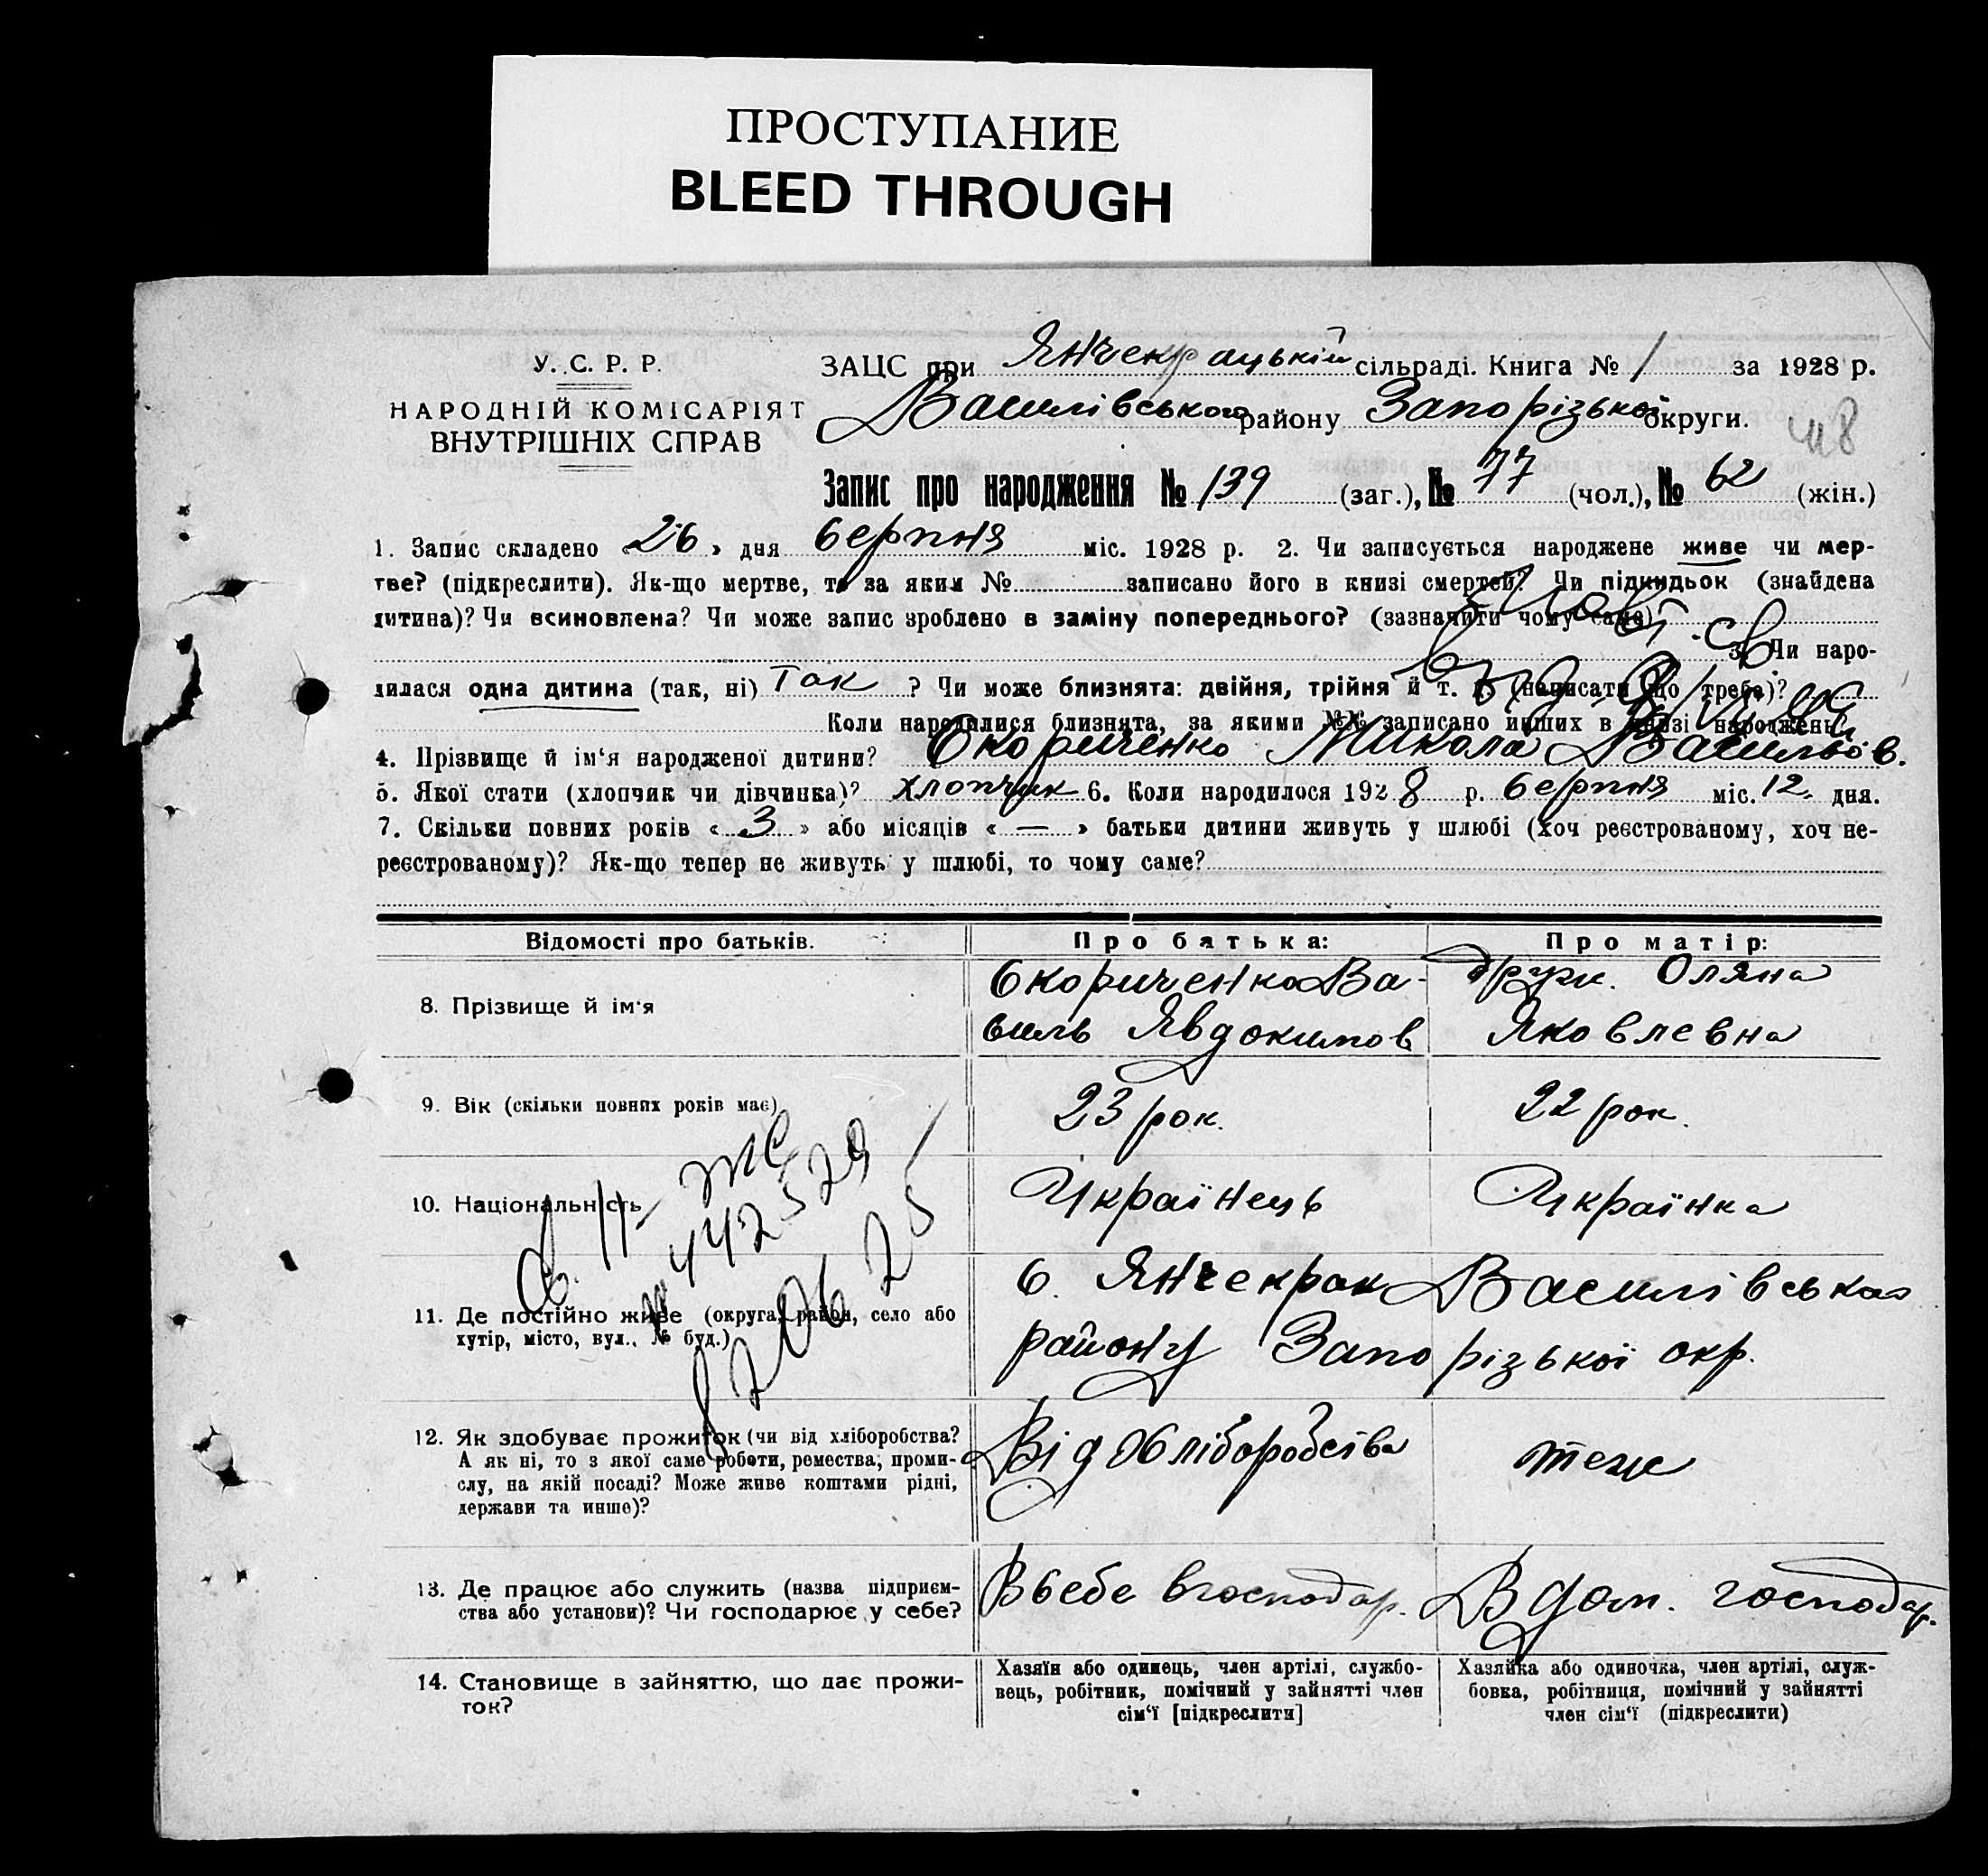 ПРОСТУПАНИЕ
BLEED THROUGH
У. С. Р. Р.
НАРОДНІЙ КОМІСАРІЯТ
ВНУТРІШНІХ СПРАВ
ЗАЦС при Янчекрацькій сільраді. Книга № 1 за 1928 р.
Василівського району Запорізької округи.
Запис про народження № 139 (заг.), № 77 (чол.), № 62 (жін.)
1. Запис складено «26» дня серпня міс. 1928 р. 2. Чи записується народжене живе чи мер-
тве? (підкреслити). Як-що мертве, то за яким № записано його в книзі смертей? Чи підкидьок (знайдена
дитина)? Чи всиновлена? Чи може запис зроблено в заміну попереднього? (зазначити чому саме)
3. Чи наро-
дилася одна дитина (так, ні) Так ? Чи може близнята: двійня, трійня й т. д. (написати що треба)?
Коли народилися близнята, за якими №№ записано инших в книзі народжень?
4. Прізвище й ім'я народженої дитини? Скориченко Микола Васильов.
5. Якої стати (хлопчик чи дівчинка)? хлопчик 6. Коли народилося 1928 р. серпня міс. 12 дня.
7. Скільки повних років «3» або місяців «—» батьки дитини живуть у шлюбі (хоч реєстрованому, хоч не-
реєстрованому)? Як-що тепер не живуть у шлюбі, то чому саме?
Відомості про батьків. Про батька: Про матір:
8. Прізвище й ім'я
Скориченко Ва-
силь Явдокимов
друж. Оляна
Яковлевна
9. Вік (скільки повних років має)
23 рок.
22 рок.
10. Національність
Українець
Українка
11. Де постійно живе (округа, район, село або
хутір, місто, вул., № буд.)
с. Янчекрак Василівського
району Запорізької окр.
12. Як здобуває прожиток (чи від хліборобства?
А як ні, то з якої саме роботи, ремества, проми-
слу, на якій посаді? Може живе коштами рідні,
держави та инше)?
Від хліборобства
теж
13. Де працює або служить (назва підприєм-
ства або установи)? Чи господарює у себе?
В себе в господар.
В дом. господар.
14. Становище в зайняттю, що дає прожи-
ток?
Хазяїн або одинець, член артілі, службо-
вець, робітник, помічний у зайнятті член
сім'ї [підкреслити]
Хазяйка або одиночка, член артілі, служ-
бовка, робітниця, помічний у зайнятті
член сім'ї (підкреслити)